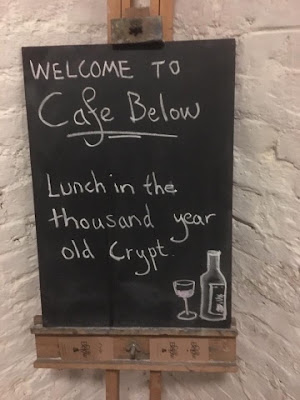 WELCOME TO
Cafe Below
Lunch in the
thousand year
old Crypt.